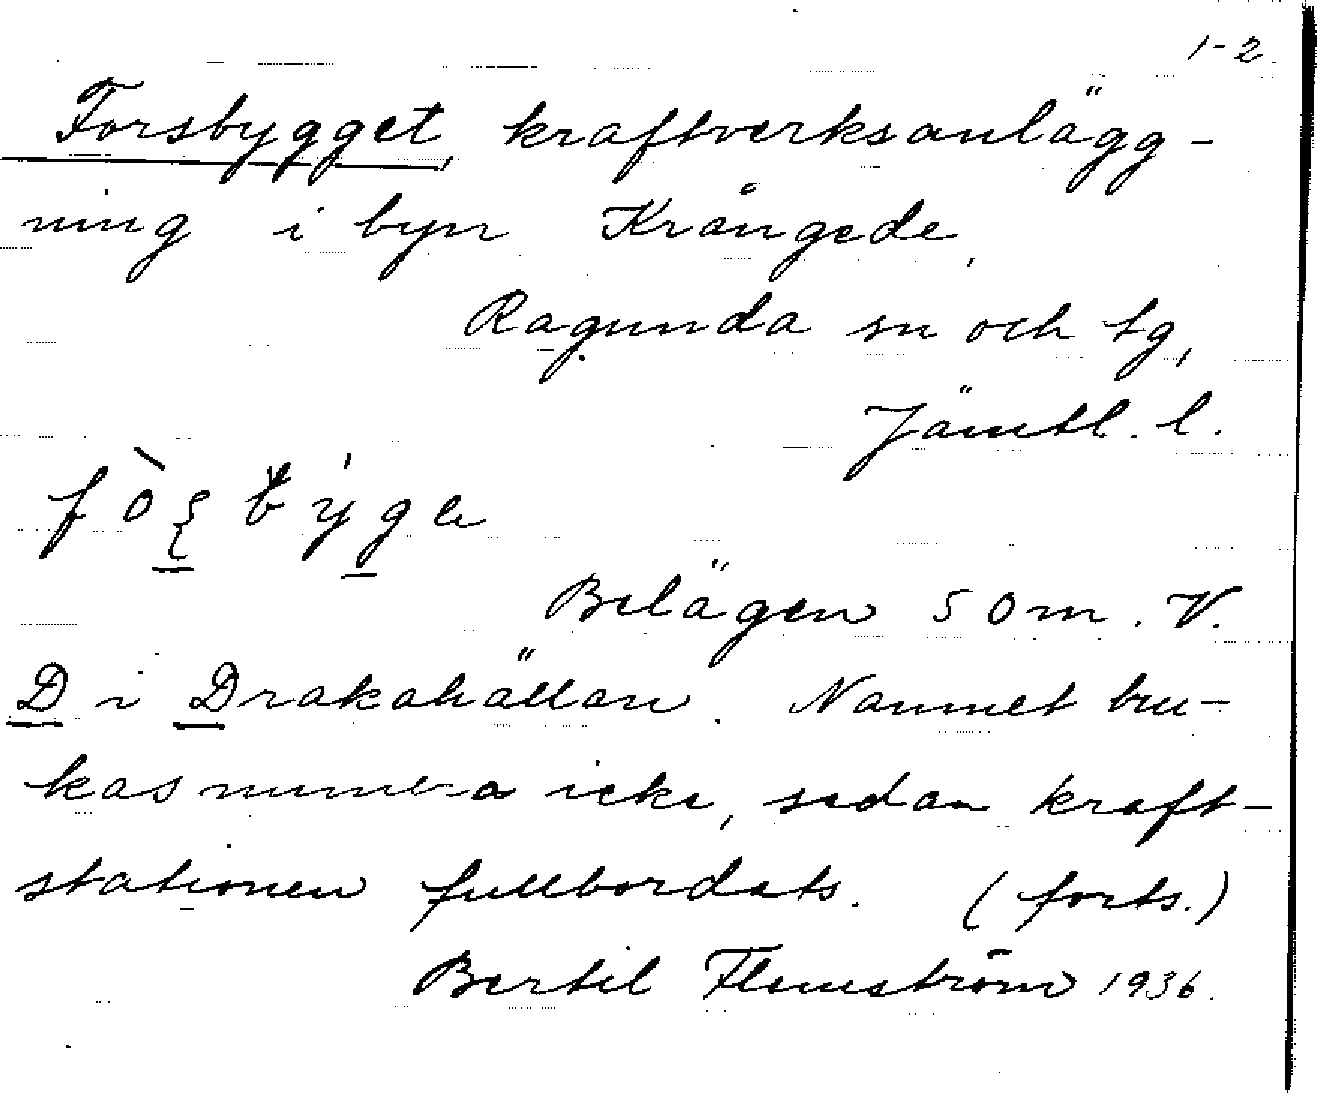 1-2
Forsbygget, kraftverksanlägg-
ning i byn Krångede,
Ragunda sn och tg,
Jämtl. l.
Belägen 50 m. V.
D i Drakahällan. Namnet bru-
kas numera icke, sedan kraft-
stationen fullbordats. (forts.)
Bertil Flemström 1936.